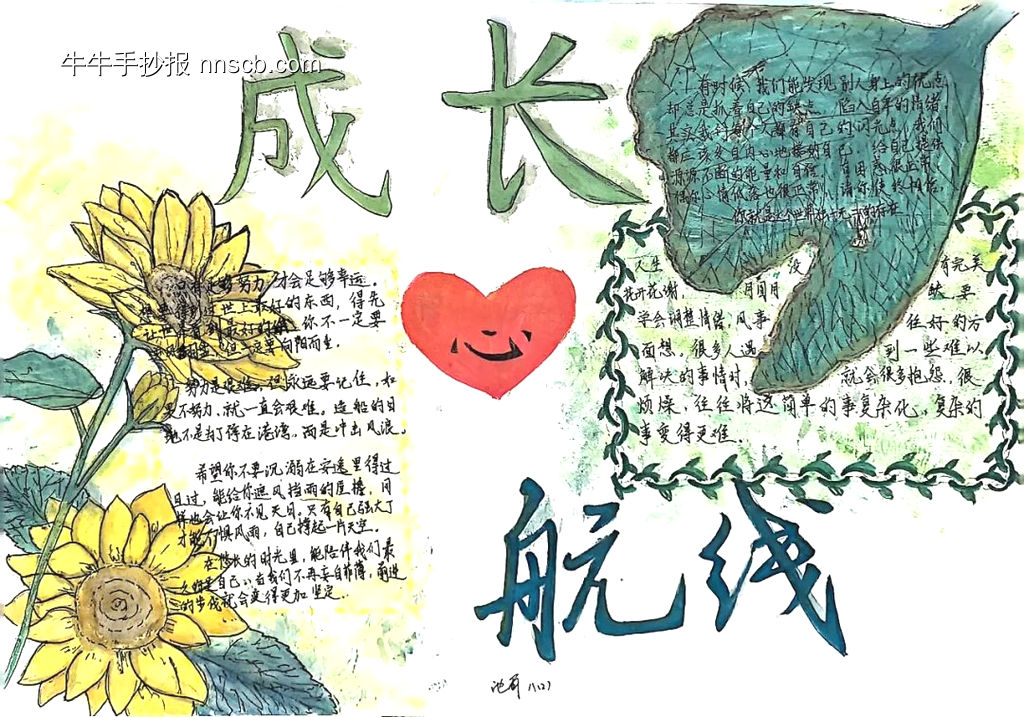 牛牛手抄报 nnscb.com
成长
有时候,我们能发现别人身上的优点
却总是抓着自己的缺点,陷入自卑的情绪。
其实我们每个人都有自己的闪光点,我们
都应该发自内心地接纳自己,给自己提供
源源不断的能量和自信。
偶尔心情低落也很正常,请你始终相信,
你就是这个世界独一无二的存在
人生 没 有完美
花开花谢, 月圆月 缺,要
学会调整情绪,凡事 往好的方
面想。很多人遇 到一些难以
解决的事情时, 就会很多抱怨,很
烦燥,往往将这简单的事复杂化,复杂的
事变得更难
只有足够努力,才会足够幸运。
世上最好的东西,得先
让世界看到最好的你。你不一定要
但一定要向阳而生。
努力是很难,但永远要记住,如
果不努力,就一直会很难。造船的目
地不是打停在港湾,而是冲出风浪。
希望你不要沉溺在安逸里得过
且过,能给你遮风挡雨的屋檐,同
样也会让你不见天日,只有自己强大了
才能不惧风雨,自己撑起一片天空。
在悠长的时光里,能陪伴我们最
久的是自己,当我们不再妄自菲薄,前进
的步伐就会变得更加坚定.
心
航线